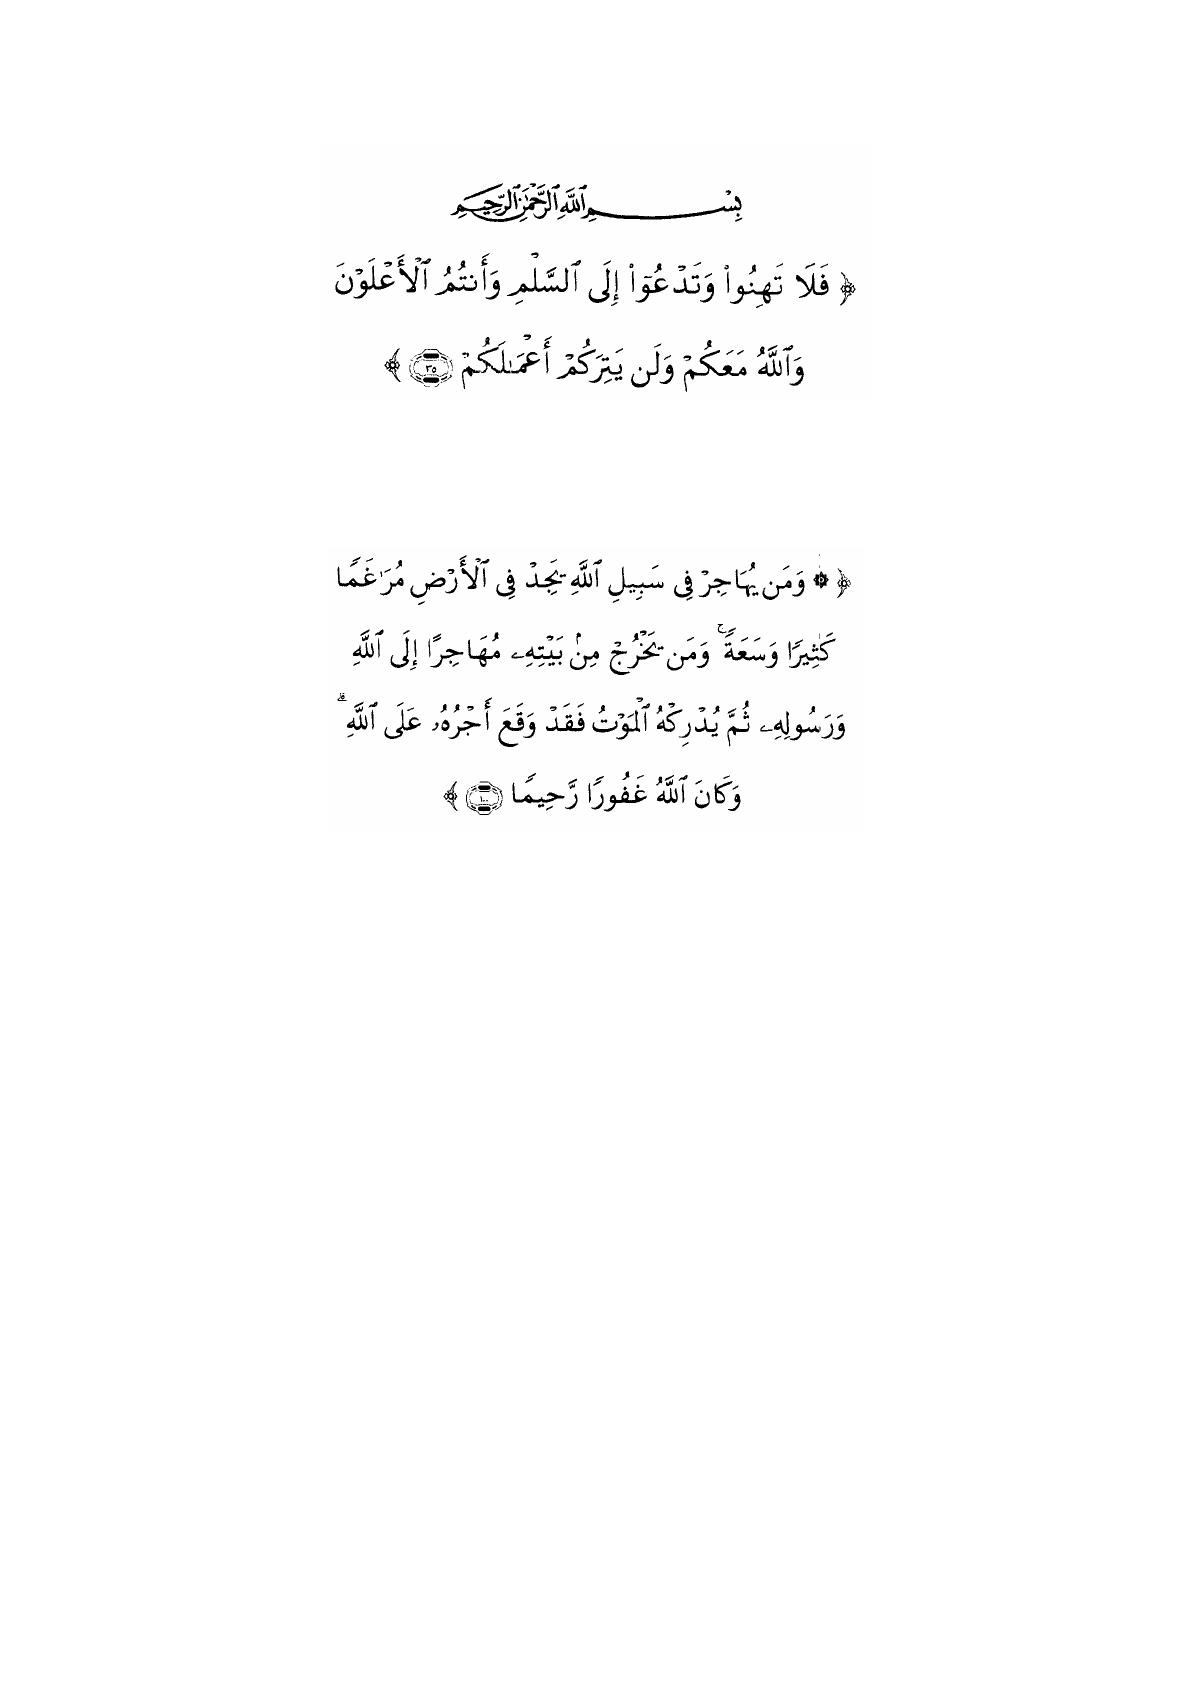 بِسْمِ ٱللَّهِ ٱلرَّحْمَٰنِ ٱلرَّحِيمِ
﴿ فَلَا تَهِنُوا۟ وَتَدْعُوٓا۟ إِلَى ٱلسَّلْمِ وَأَنتُمُ ٱلْأَعْلَوْنَ
وَٱللَّهُ مَعَكُمْ وَلَن يَتِرَكُمْ أَعْمَـٰلَكُمْ ٣٥ ﴾
﴿ ۞ وَمَن يُهَاجِرْ فِى سَبِيلِ ٱللَّهِ يَجِدْ فِى ٱلْأَرْضِ مُرَٰغَمًا
كَثِيرًا وَسَعَةً ۚ وَمَن يَخْرُجْ مِنۢ بَيْتِهِۦ مُهَاجِرًا إِلَى ٱللَّهِ
وَرَسُولِهِۦ ثُمَّ يُدْرِكْهُ ٱلْمَوْتُ فَقَدْ وَقَعَ أَجْرُهُۥ عَلَى ٱللَّهِ ۗ
وَكَانَ ٱللَّهُ غَفُورًا رَّحِيمًا ١٠٠ ﴾